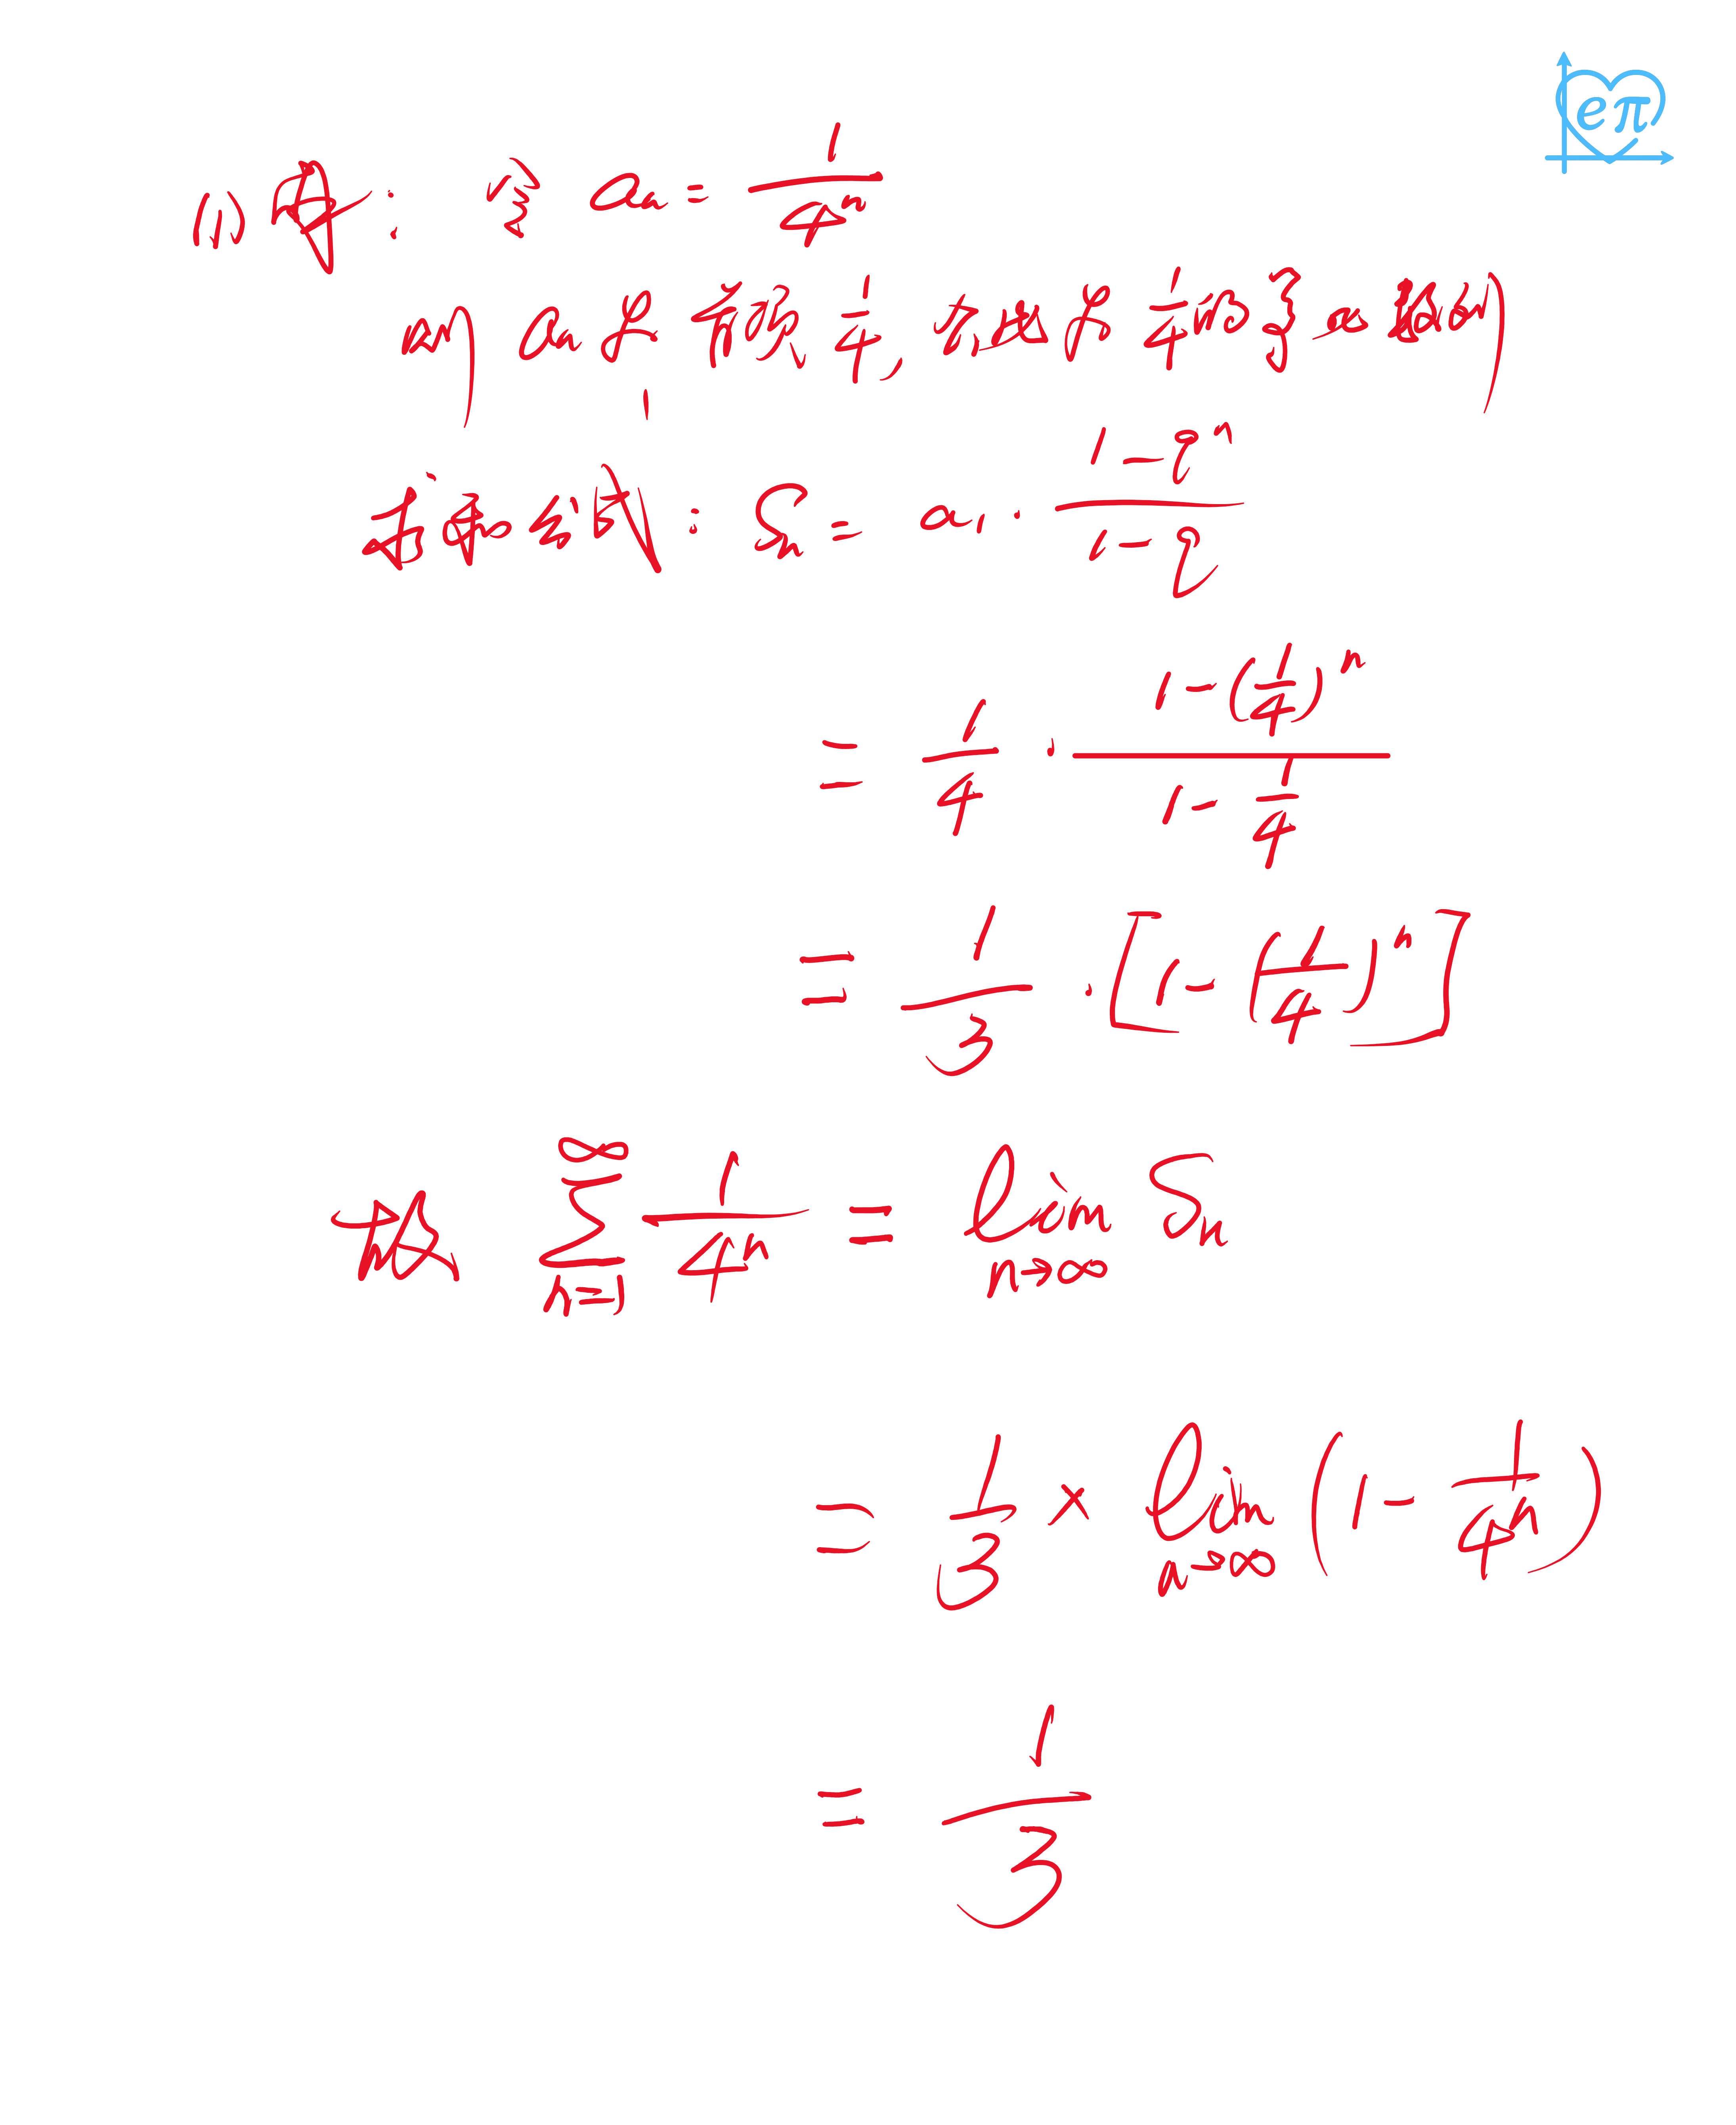 eπ
(1) 解: 令 aₙ = 1/4ⁿ
则 aₙ 是首项 1/4, 公比是 1/4 的等比数列
求和公式: Sₙ = a₁ · (1-qⁿ)/(1-q)
= 1/4 · (1-(1/4)ⁿ)/(1-1/4)
= 1/3 · [1-(1/4)ⁿ]
故 ∑_{n=1}^{∞} 1/4ⁿ = lim_{n→∞} Sₙ
= 1/3 × lim_{n→∞} (1 - 1/4ⁿ)
= 1/3